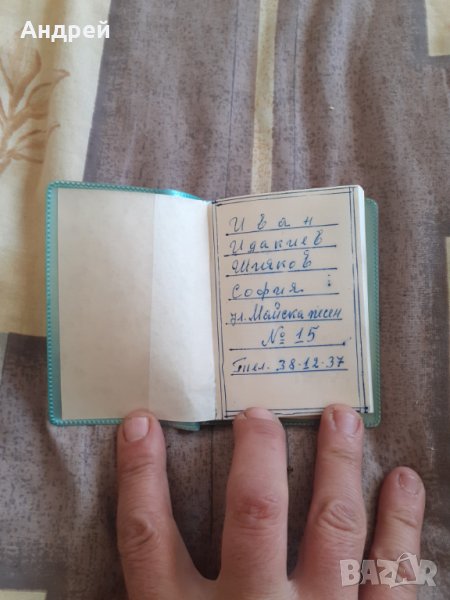 Андрей
Иван
Идакиев
Шияков
София
ул. Майска песен
№ 15
Тел. 38-12-37
BAZAR